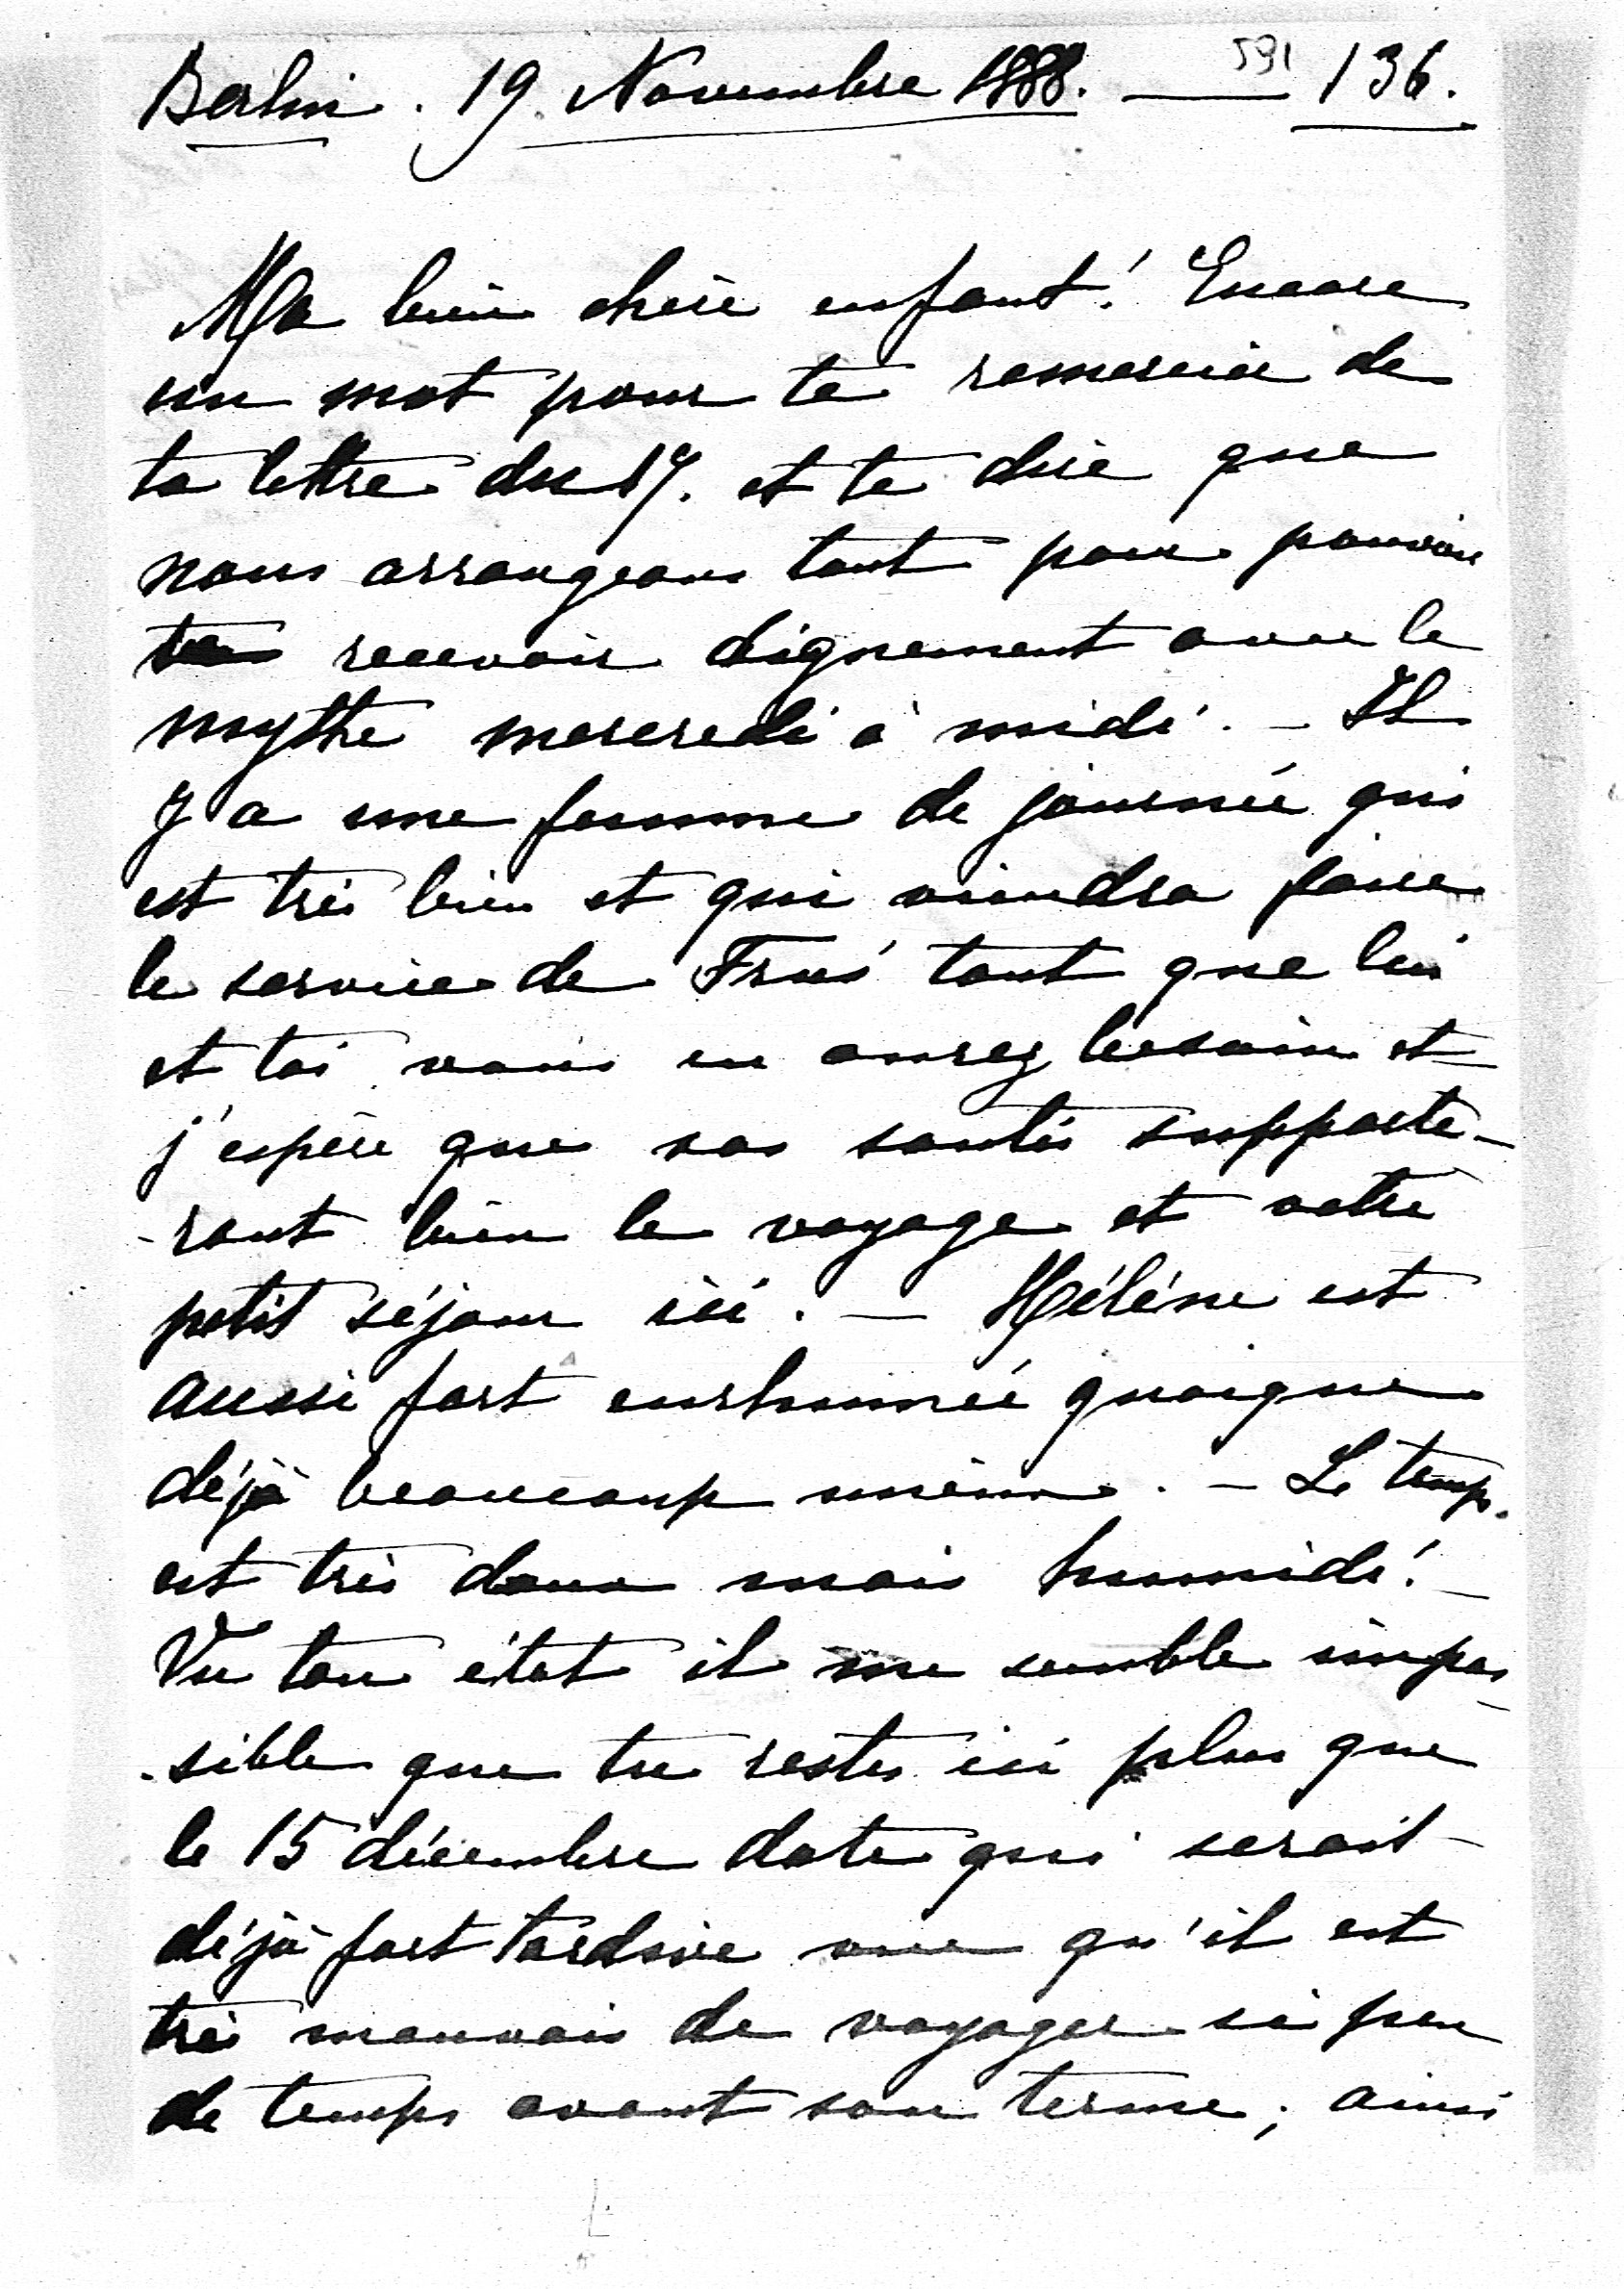 Berlin. 19. Novembre 1888. — 591 136.
Ma bien chère enfant! Encore
un mot pour te remercier de
ta lettre du 17. et te dire que
nous arrangeons tout pour pouvoir
te recevoir dignement avec le
mythe mercredi à midi. – Il
y a une femme de journée qui
est très bien et qui viendra faire
le service de tant que lui
et toi vous en aurez besoin et
j'espère que vos santés supporte-
-ront bien le voyage et votre
petit séjour ici. — Hélène est
aussi fort enrhumée quoique
déjà beaucoup mieux. – Le temps
est très doux mais humide! –
Vu ton état il me semble impos-
-sible que tu restes ici plus que
le 15 décembre date qui serait
déjà fort tardive vu qu'il est
très mauvais de voyager si peu
de temps avant son terme; ainsi